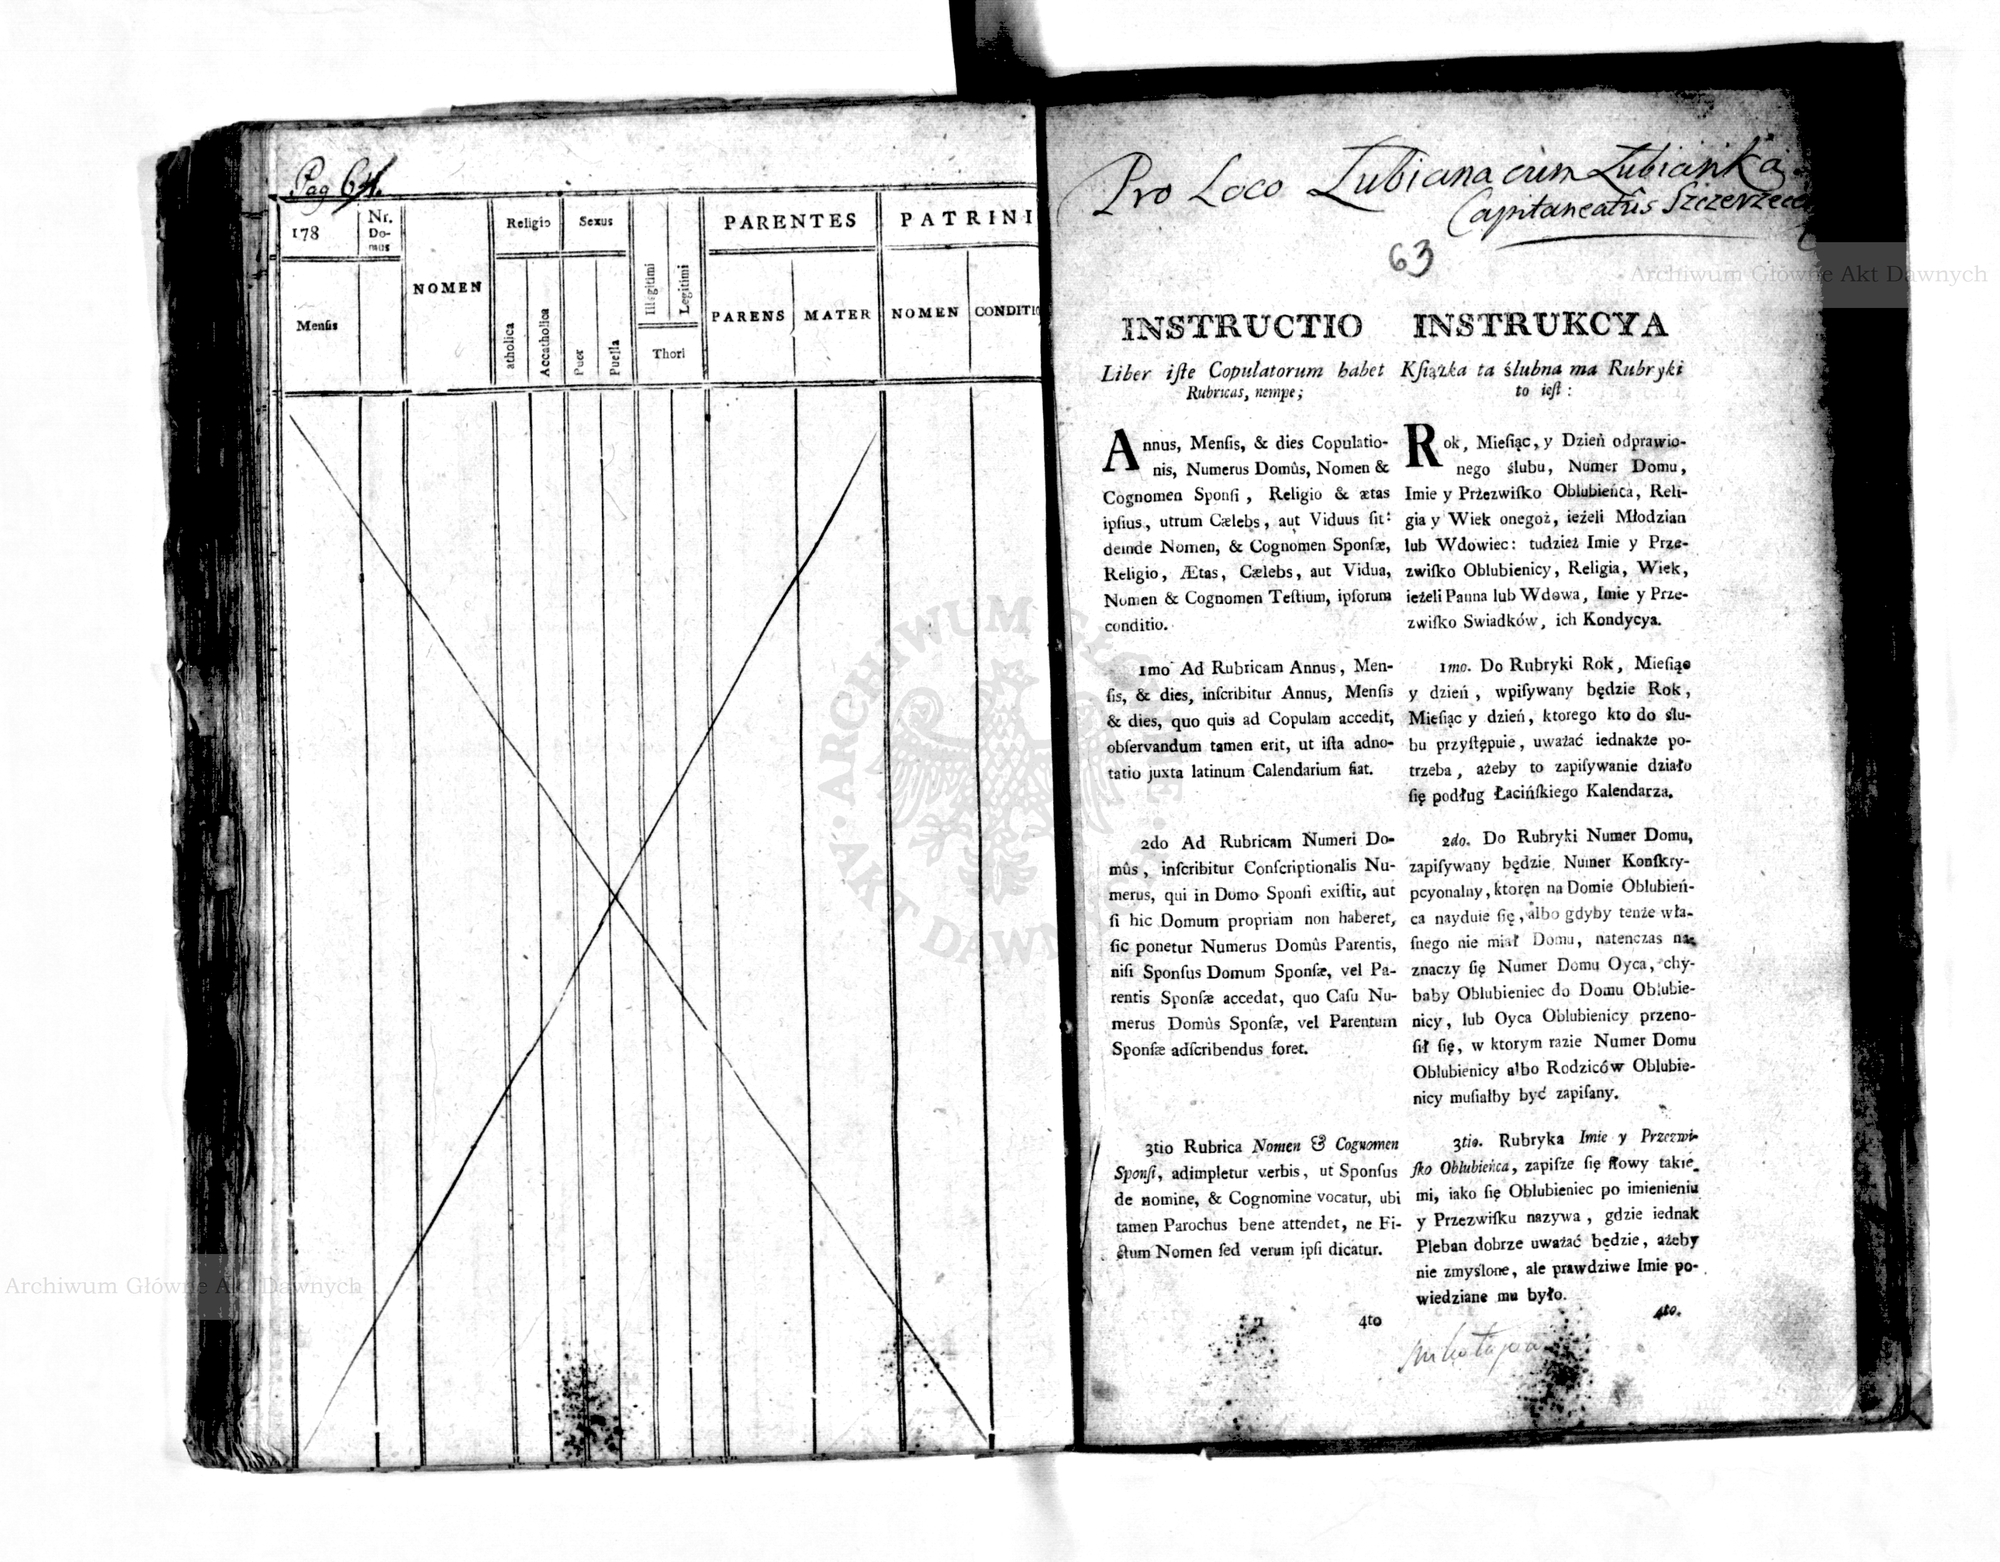 Pag 64.
178
Nr. Do-mus
NOMEN
Religio
Sexus
PARENTES
PATRINI
Mensis
atholica
Accatholica
Puer
Puella
Illegitimi
Legitimi
Thori
PARENS
MATER
NOMEN
CONDITIO
Pro Loco Lubiana cum Lubianka
Capitaneatûs Szczerzece
63
INSTRUCTIO
Liber iſte Copulatorum habet
Rubricas, nempe;
Annus, Menſis, & dies Copulatio-
nis, Numerus Domûs, Nomen &
Cognomen Sponſi, Religio & ætas
ipſius, utrum Cælebs, aut Viduus ſit:
deinde Nomen, & Cognomen Sponſæ,
Religio, Ætas, Cælebs, aut Vidua,
Nomen & Cognomen Teſtium, ipſorum
conditio.
1mo Ad Rubricam Annus, Men-
ſis, & dies, inſcribitur Annus, Menſis
& dies, quo quis ad Copulam accedit,
obſervandum tamen erit, ut iſta adno-
tatio juxta latinum Calendarium fiat.
2do Ad Rubricam Numeri Do-
mûs, inſcribitur Conſcriptionalis Nu-
merus, qui in Domo Sponſi exiſtit, aut
ſi hic Domum propriam non haberet,
ſic ponetur Numerus Domûs Parentis,
niſi Sponſus Domum Sponſæ, vel Pa-
rentis Sponſæ accedat, quo Caſu Nu-
merus Domûs Sponſæ, vel Parentum
Sponſæ adſcribendus foret.
3tio Rubrica Nomen & Cognomen
Sponſi, adimpletur verbis, ut Sponſus
de nomine, & Cognomine vocatur, ubi
tamen Parochus bene attendet, ne Fi-
ctum Nomen ſed verum ipſi dicatur.
4to
INSTRUKCYA
Kſiążka ta ślubna ma Rubryki
to ieſt:
Rok, Mieſiąc, y Dzień odprawio-
nego ślubu, Numer Domu,
Imie y Przezwiſko Oblubieńca, Reli-
gia y Wiek onegoż, ieżeli Młodzian
lub Wdowiec: tudzież Imie y Prze-
zwiſko Oblubienicy, Religia, Wiek,
ieżeli Panna lub Wdowa, Imie y Prze-
zwiſko Swiadków, ich Kondycya.
1mo. Do Rubryki Rok, Mieſiąc
y dzień, wpiſywany będzie Rok,
Mieſiąc y dzień, ktorego kto do ślu-
bu przyſtępuie, uważać iednakże po-
trzeba, ażeby to zapiſywanie działo
ſię podług Łacińſkiego Kalendarza.
2do. Do Rubryki Numer Domu,
zapiſywany będzie Numer Konſkry-
pcyonalny, ktoren na Domie Oblubień-
ca nayduie ſię, albo gdyby tenże wła-
ſnego nie miał Domu, natenczas na-
znaczy ſię Numer Domu Oyca, chy-
baby Oblubieniec do Domu Oblubie-
nicy, lub Oyca Oblubienicy przeno-
ſił ſię, w ktorym razie Numer Domu
Oblubienicy albo Rodziców Oblubie-
nicy muſiałby być zapiſany.
3tio. Rubryka Imie y Przezwi-
ſko Oblubieńca, zapiſze ſię ſłowy takie-
mi, iako ſię Oblubieniec po imienieniu
y Przezwiſku nazywa, gdzie iednak
Pleban dobrze uważać będzie, ażeby
nie zmyślone, ale prawdziwe Imie po-
wiedziane mu było.
4to.
Archiwum Główne Akt Dawnych
Archiwum Główne Akt Dawnych
ARCHIWUM GŁÓWNE AKT DAWNYCH